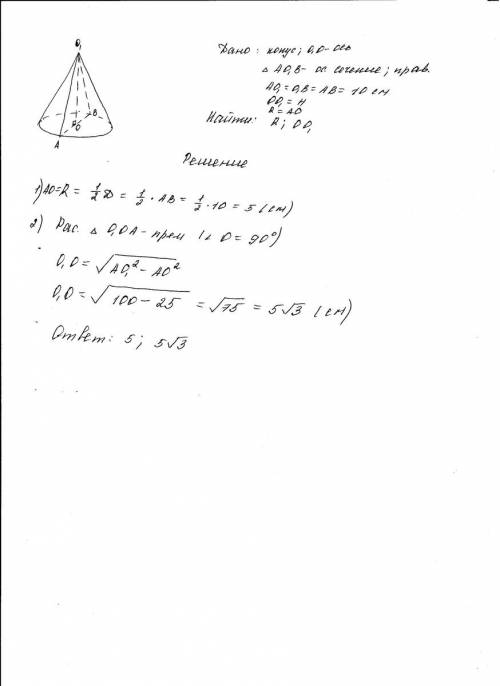 O₁
B
R O
A
Дано: конус; O₁O - ось
△ AO₁B - ос. сечение; прав.
AO₁ = O₁B = AB = 10 см
OO₁ = H
R = AO
Найти: R; OO₁
Решение
1) AO = R = 1/2 D = 1/2 · AB = 1/2 · 10 = 5 (см)
2) Рас. △ O₁OA - прям. (∠O = 90°)
O₁O = √(AO₁² - AO²)
O₁O = √(100 - 25) = √75 = 5√3 (см)
Ответ: 5; 5√3